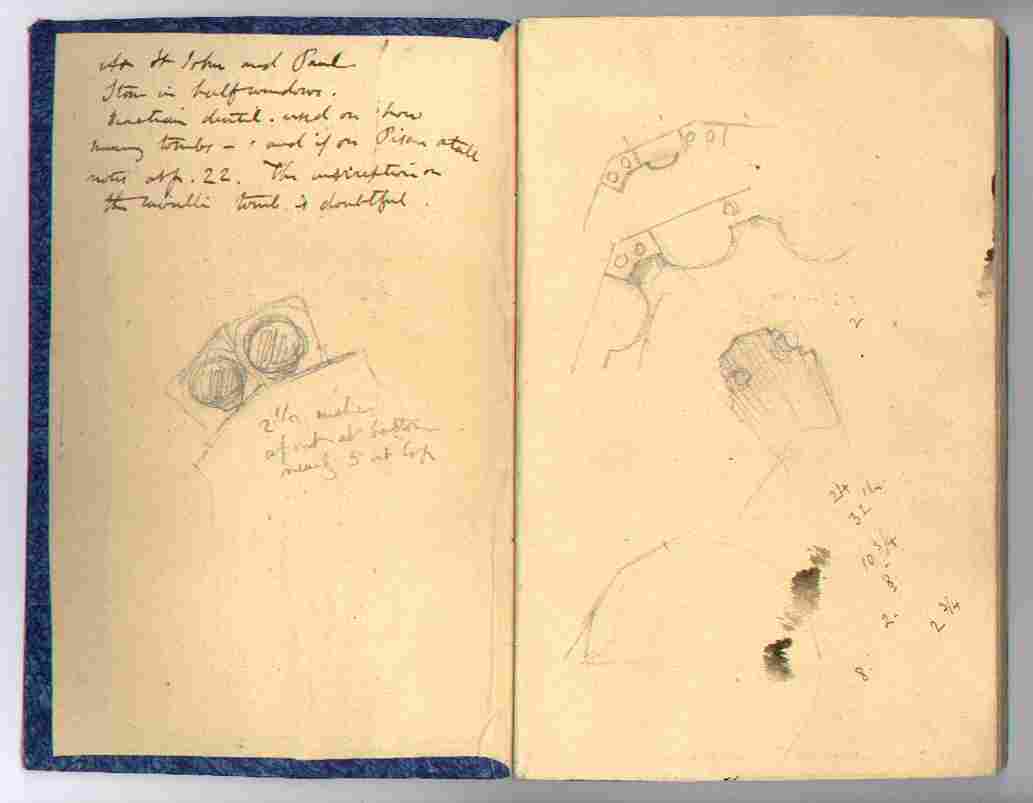 St John and Paul
Stone in half windows.
Venetian dentil. used on how
many tombs - and if on Pisan
note at p. 22. The inscription on
the Cavalli tomb is doubtful.
2 1/2 inches
apart at bottom
nearly 5 at top
2
2/4
32
10 3/4
8
2
2 3/4
8